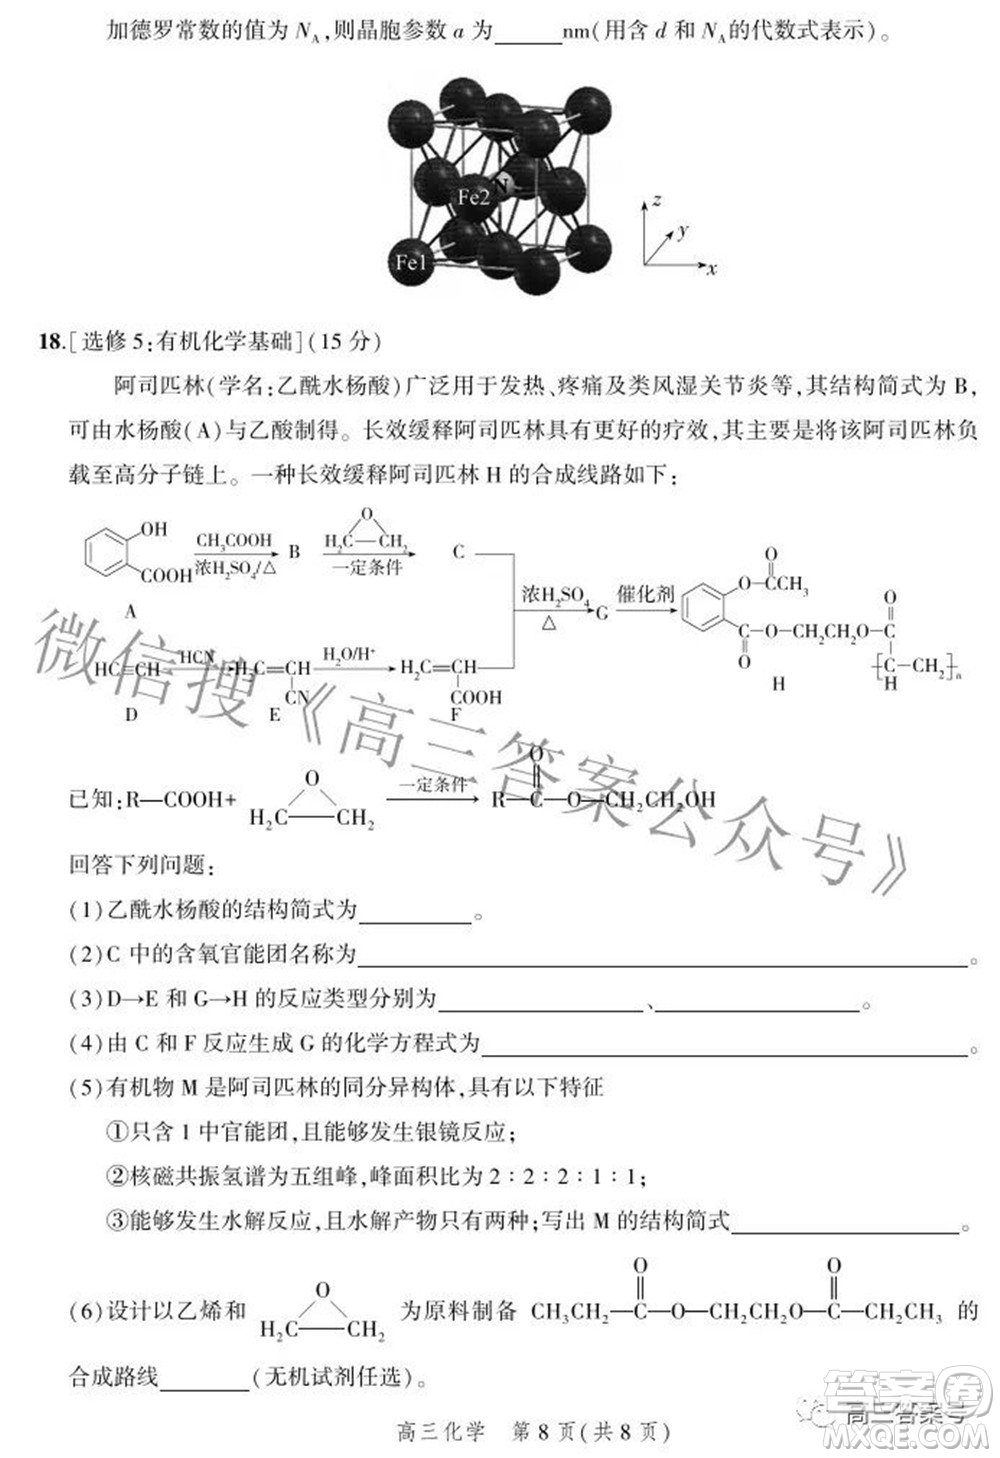 加德罗常数的值为 NA,则晶胞参数 a 为______nm(用含 d 和 NA的代数式表示)。
Fe2 N
Fe1
z
y
x
18.[选修5:有机化学基础](15分)
阿司匹林(学名:乙酰水杨酸)广泛用于发热、疼痛及类风湿关节炎等,其结构简式为 B,
可由水杨酸(A)与乙酸制得。长效缓释阿司匹林具有更好的疗效,其主要是将该阿司匹林负
载至高分子链上。一种长效缓释阿司匹林 H 的合成线路如下:
OH
COOH
A
CH3COOH
浓H2SO4/△
B
O
H2C—CH2
一定条件
C
HC≡CH
D
HCN
H2C
CN
E
H2O/H+
H2C
COOH
F
浓H2SO4
△
G
催化剂
O
O—C—CH3
C—O—CH2CH2O—C
O
O
[C—CH2]n
H
H
已知:R—COOH+
O
H2C—CH2
一定条件
O
R—C—O—CH2CH2OH
回答下列问题:
(1)乙酰水杨酸的结构简式为________。
(2)C 中的含氧官能团名称为________。
(3)D→E 和 G→H 的反应类型分别为________、________。
(4)由 C 和 F 反应生成 G 的化学方程式为________。
(5)有机物 M 是阿司匹林的同分异构体,具有以下特征
①只含 1 中官能团,且能够发生银镜反应;
②核磁共振氢谱为五组峰,峰面积比为 2∶2∶2∶1∶1;
③能够发生水解反应,且水解产物只有两种;写出 M 的结构简式________。
(6)设计以乙烯和
O
H2C—CH2
为原料制备
O O
CH3CH2—C—O—CH2CH2O—C—CH2CH3 的
合成路线______(无机试剂任选)。
高三化学 第 8 页(共 8 页)
微信搜《高三答案公众号》
高三答案号
答案圈
MXQE.COM